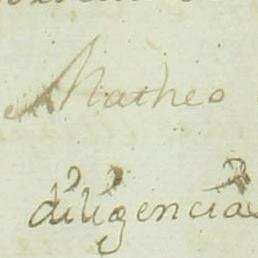 Matheo
diligencias